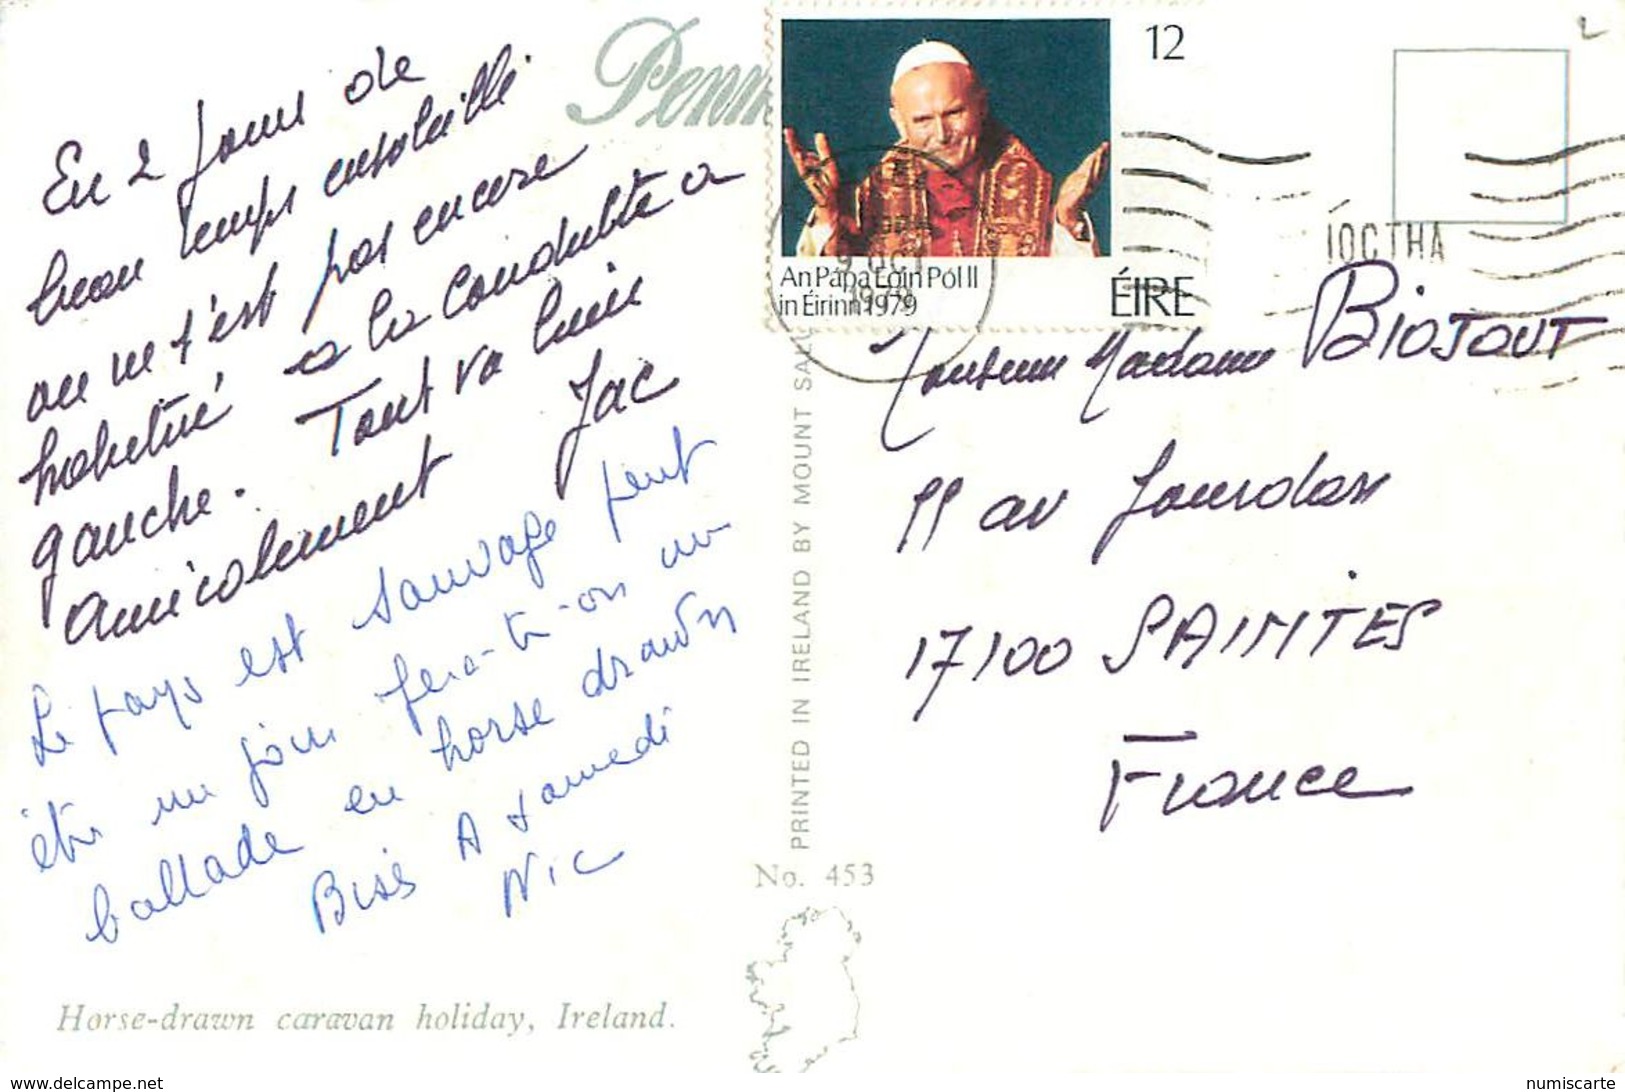 En 2 jours de
beau temps ensoleillé
on ne s'est pas encore
habitué à la conduite à
gauche. Tout va bien
amicalement Jac
Le pays est sauvage peut
être un jour fera-t-on une
ballade en horse drawn
Bises A samedi
Nic
Horse-drawn caravan holiday, Ireland.
PRINTED IN IRELAND BY MOUNT SAL
No. 453
12
An Pápa Eoin Pól II
in Éirinn 1979
ÉIRE
9 OCT
1979
ÍOCTHA
Monsieur Madame BIOJOUT
55 av Jourdan
17100 SAINTES
France
delcampe.net
numiscarte